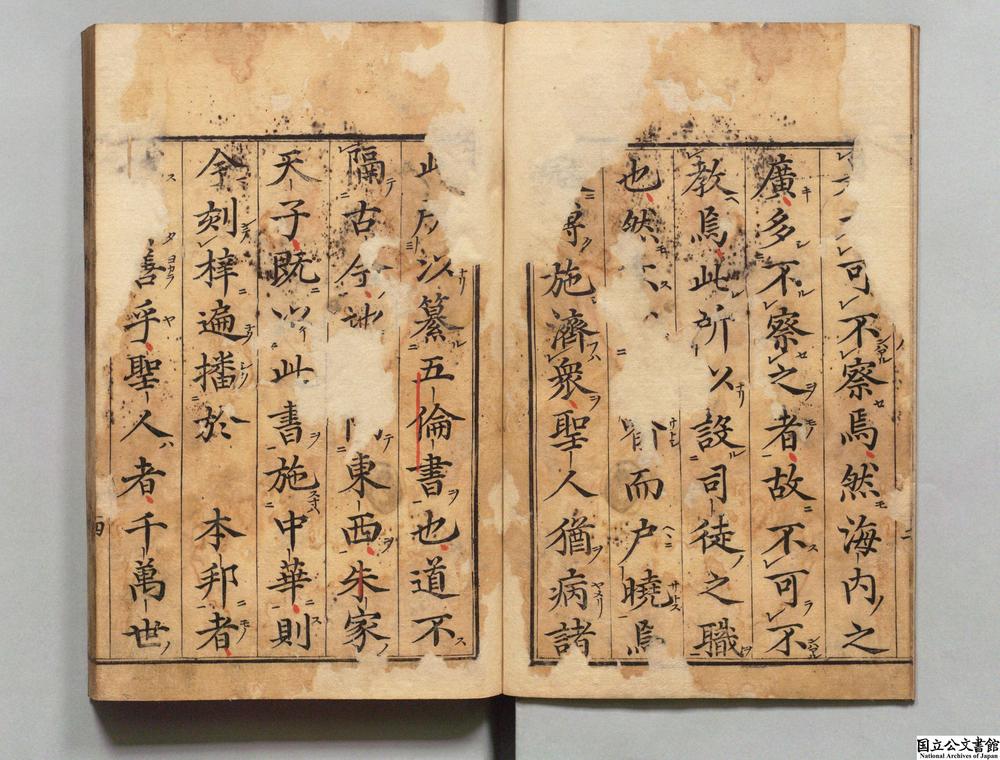 可不察焉然海内之
廣多不察之者故不可不
教焉此所以設司徒之職
也然 而戸曉焉
施濟衆聖人猶病諸
以纂五倫書也道不
隔古今 東西朱家
天子既以此書施中華則
今刻梓遍播於 本邦者
乎聖人者千萬世
二
四
国立公文書館
National Archives of Japan